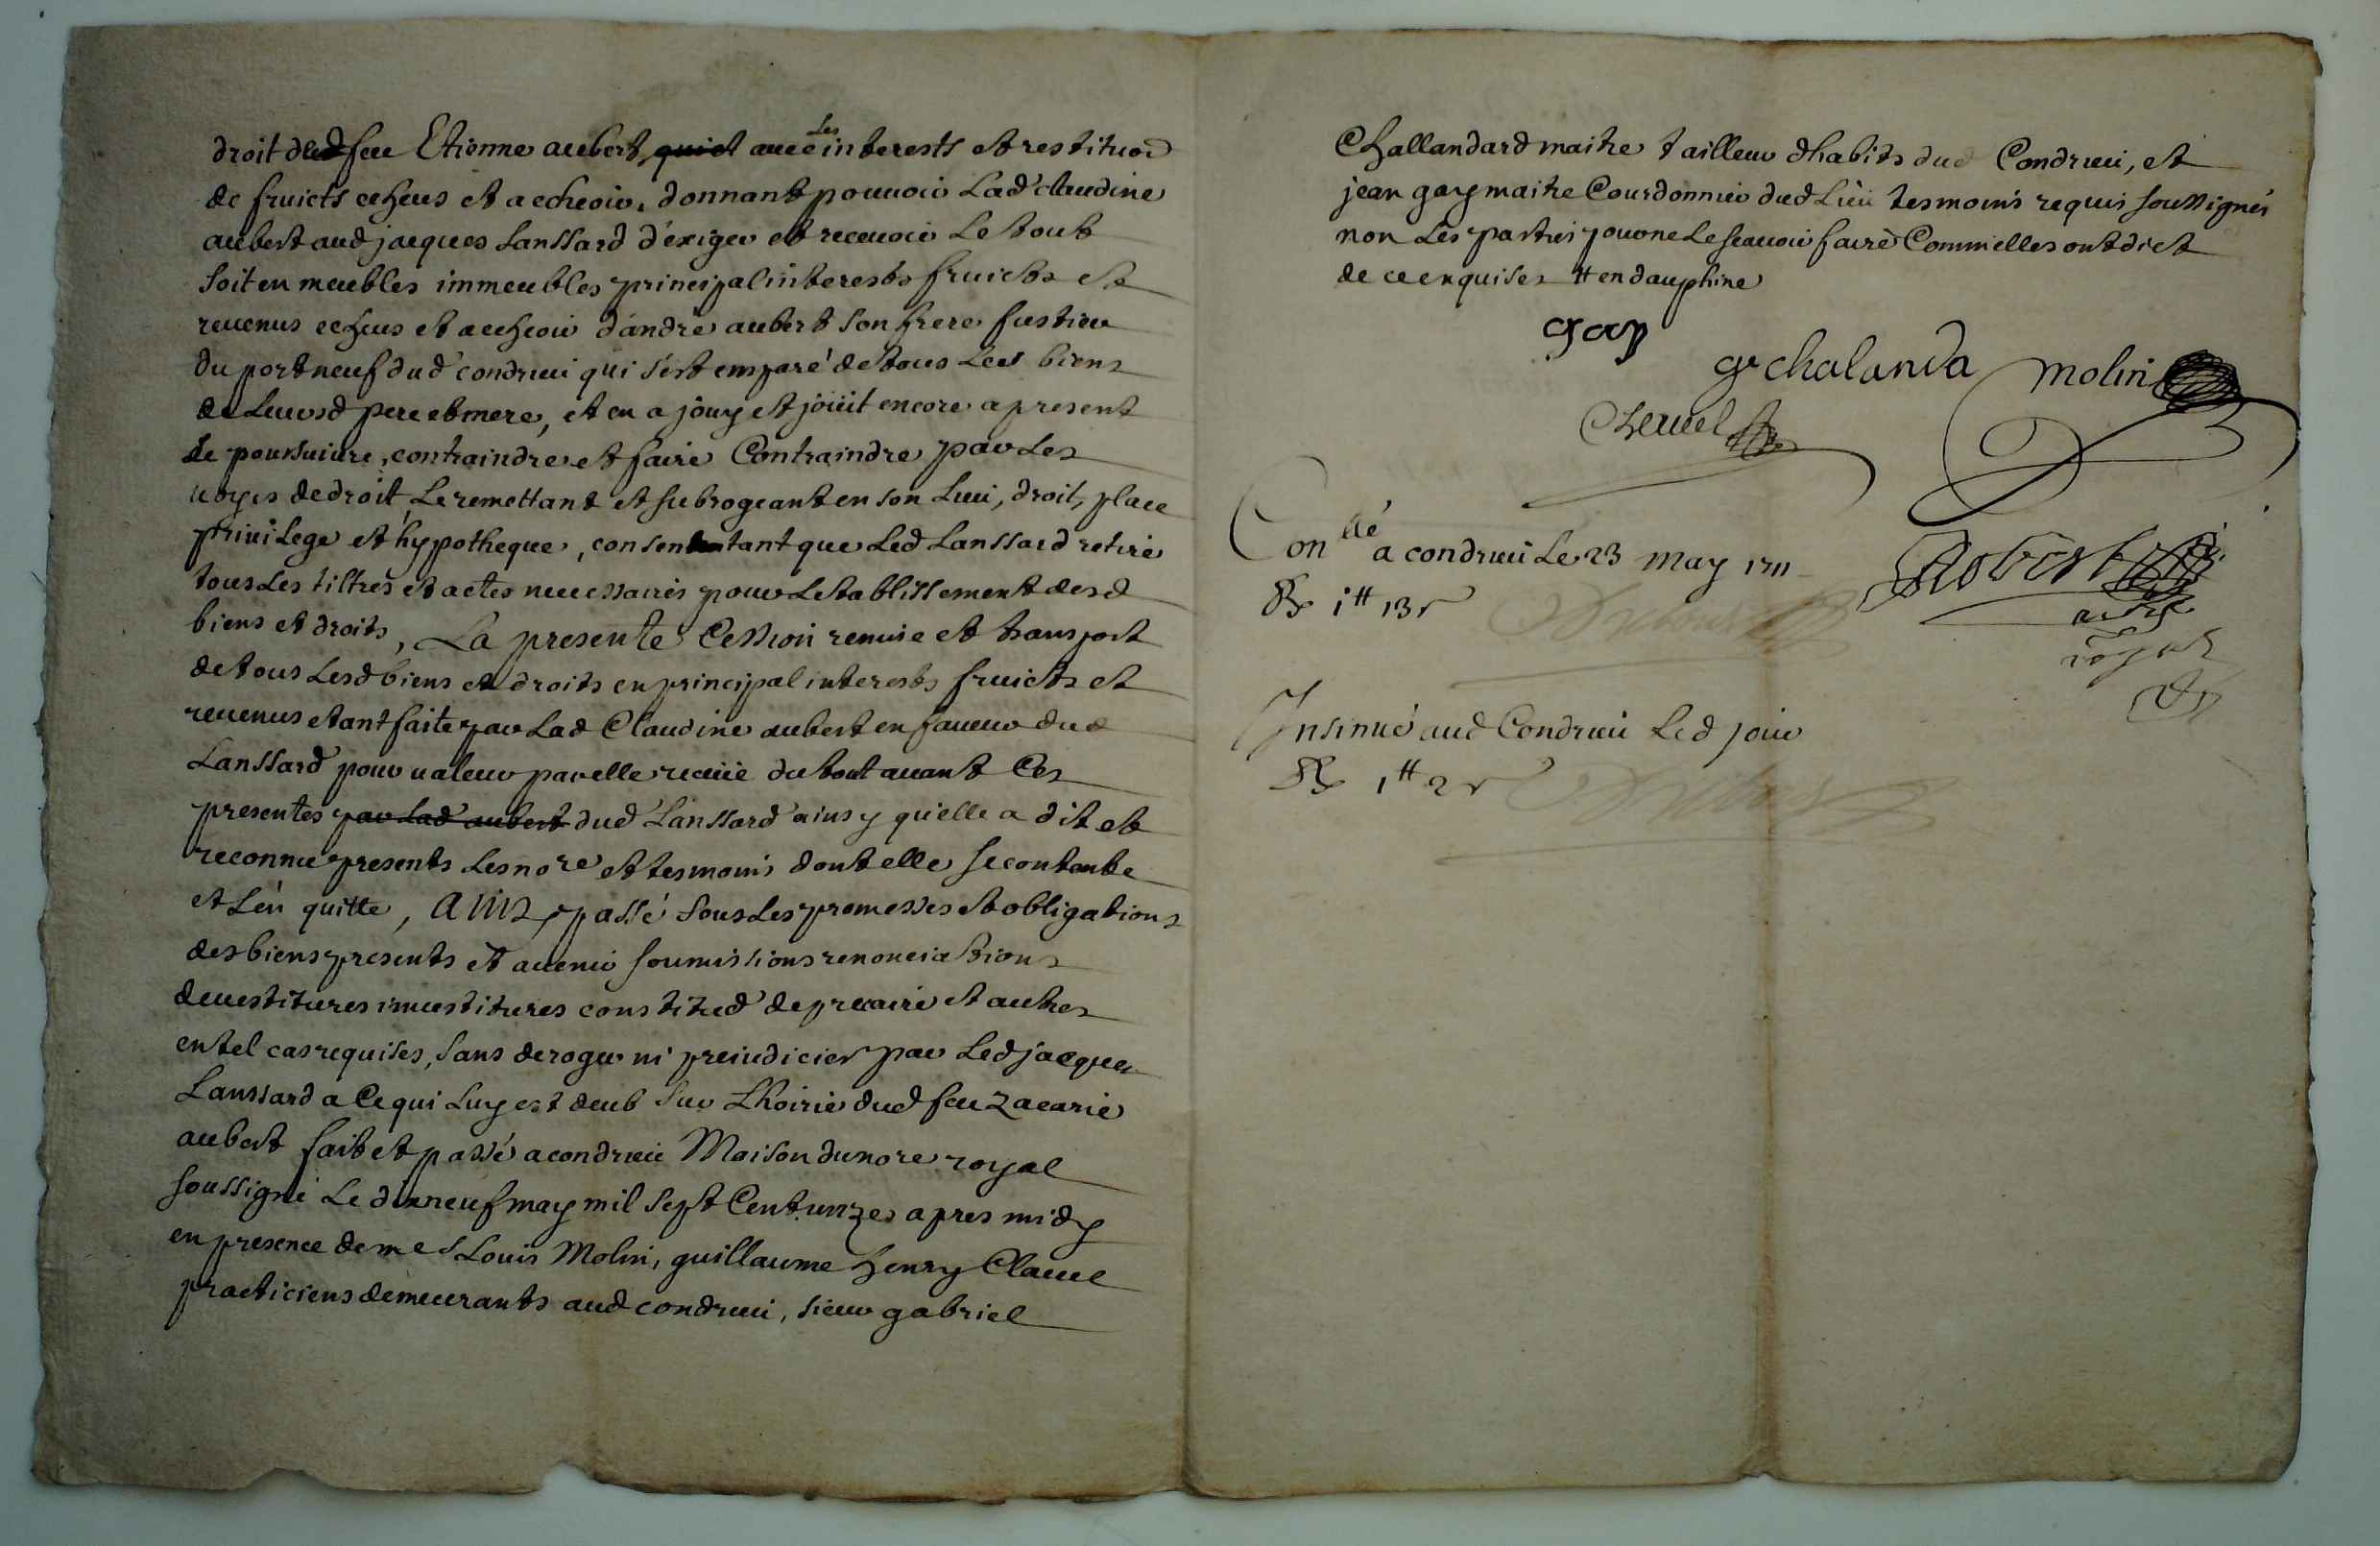 droit dud feu Etienne aubert, quiel avec les interests et restituōn
de fruicts echeus et a echeoir, donnant pouvoir Lad claudine
aubert aud jacques Lanssard d'exiger et recevoir Le tout
soit en meubles immeubles principal interests fruicts et
revenus echeus et a echeoir d'andré aubert son frere fustier
du port neuf dud condrieu qui s'est emparé de tous Les biens
de Leursd pere et mere, et en a jouy et joüit encore a present
Le poursuivre, contraindre et faire Contraindre par Les
voyes de droit, Le remettant et subrogeant en son Lieu, droit, place
privilege et hypotheque, consentant que Led Lanssard retire
tous Les tiltres et actes necessaires pour Letablissement desd
biens et droits, La presente Cession remise et transport
de tous Lesd biens et droits en principal interests fruicts et
revenus etant faite par Lad Claudine aubert en faveur dud
Lanssard pour valeur par elle receüe du tout avant Ces
presentes par Lad aubert dud Lanssard ainsy qu'elle a dit et
reconnu presents Les nore et tesmoins dont elle se contante
et L'en quitte, Ains, passé sous Les promesses et obligations
des biens presents et avenir soumissions renonciations
devestitures investitures constitued de precaire et autres
en tel cas requises, sans deroger ni preiudicier par Led jacques
Lanssard a Ce qui Luy est deub sur Lhoirie dud feu zacarie
aubert fait et passé a condrieu Maison du nore royal
soussigné Le dixneuf may mil sept Cent unze apres midy
en presence de mes Louis Molin, guillaume henry Clavel
practiciens demeurants aud condrieu, sieur gabriel
Challandard maitre tailleur dhabits dud Condrieu, et
jean gay maitre Courdonnier dud Lieu tesmoins requis soussignés
non Les parties pour ne Le scavoir faire Comm'elles ont dict
de ce enquises # en dauphine
gay
g chalanda molin
Clavel
Conllé a condrieu Le 23 may 1711
Rx 1# 13 s
Robert
nore
royal
Insinué aud Condrieu Led jour
Rx 1# 2 s